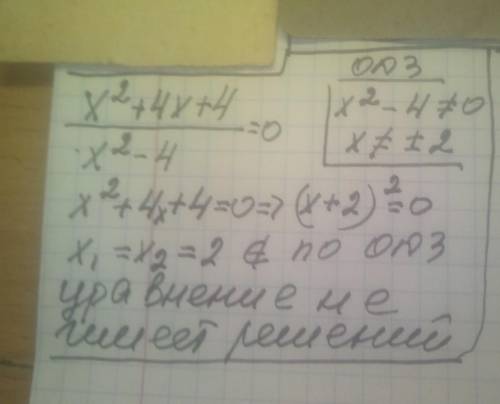 ОДЗ
x²+4x+4 / x²-4 =0
x²-4≠0
x≠±2
x²+4x+4=0=>(x+2)²=0
x₁=x₂=2 ∉ по ОДЗ
уравнение не
имеет решений